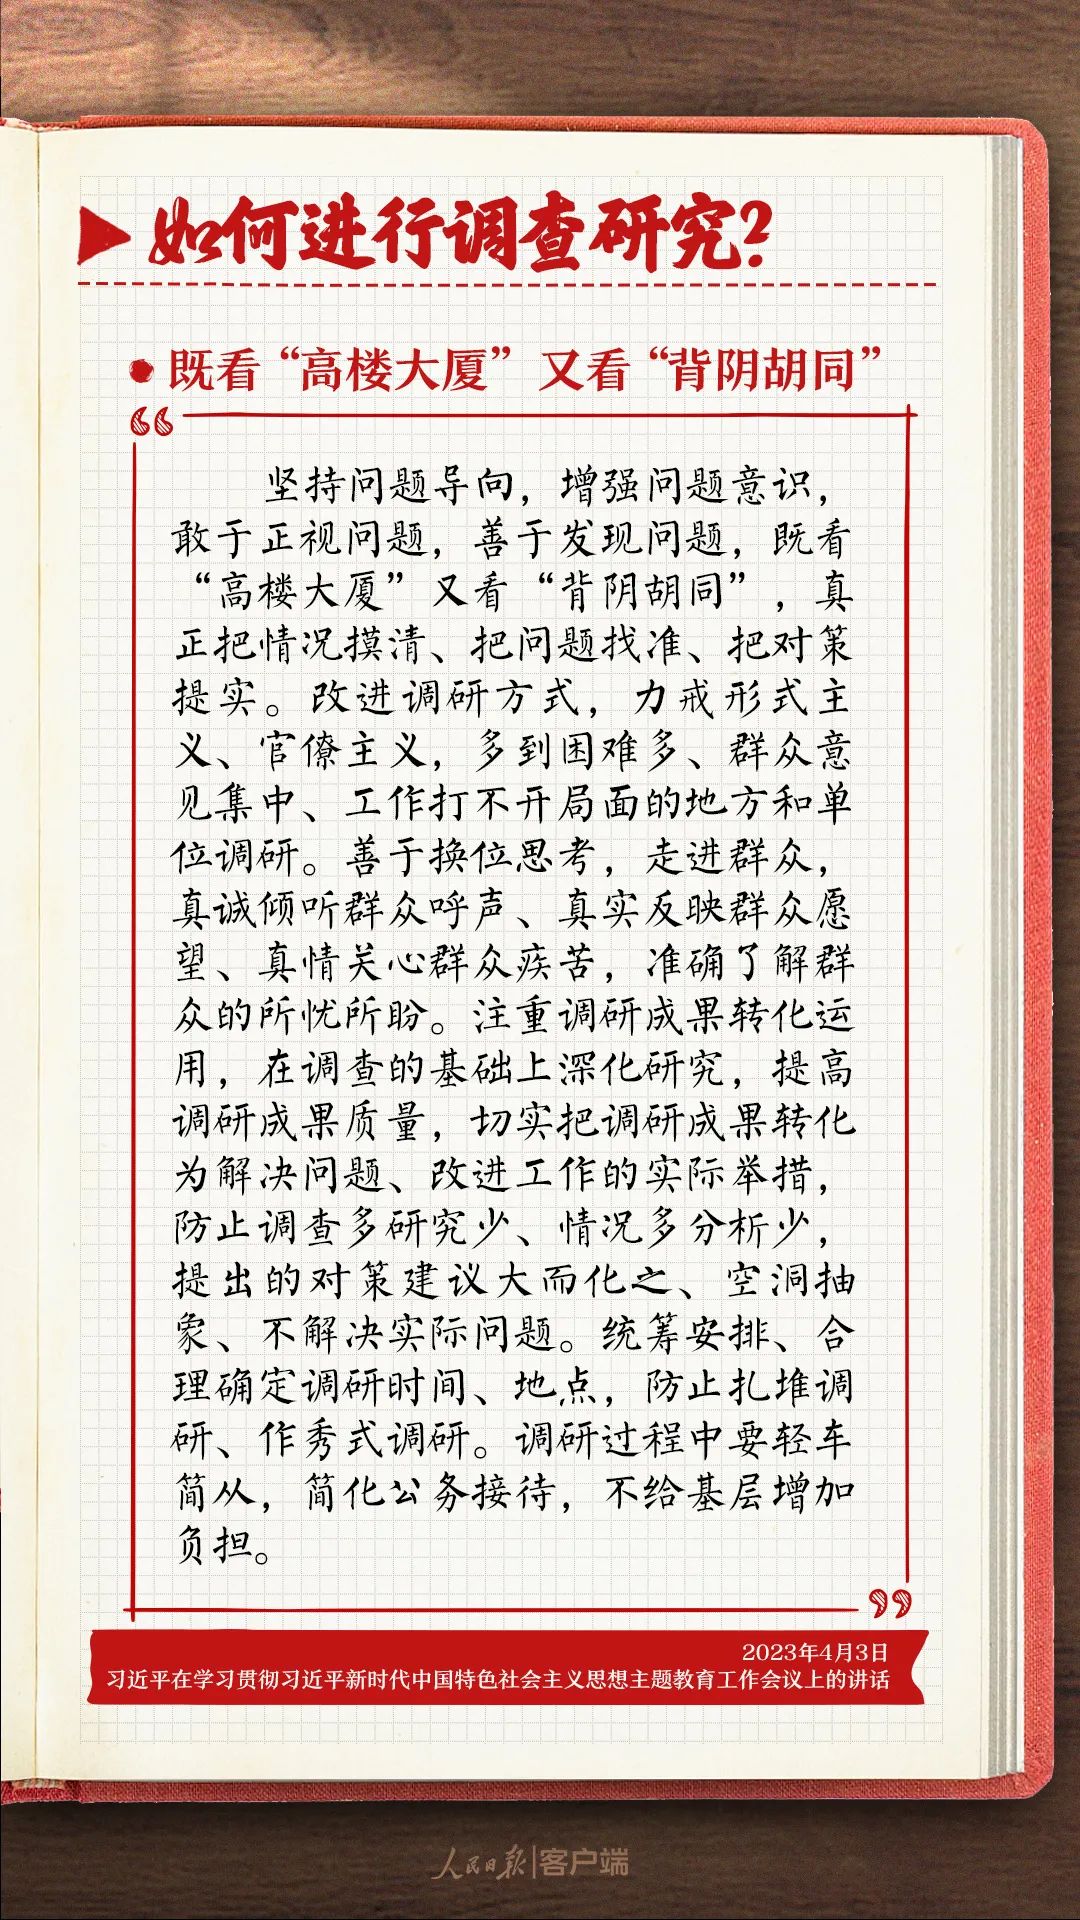 如何进行调查研究?
既看“高楼大厦”又看“背阴胡同”
坚持问题导向，增强问题意识，
敢于正视问题，善于发现问题，既看
“高楼大厦”又看“背阴胡同”，真
正把情况摸清、把问题找准、把对策
提实。改进调研方式，力戒形式主
义、官僚主义，多到困难多、群众意
见集中、工作打不开局面的地方和单
位调研。善于换位思考，走进群众，
真诚倾听群众呼声、真实反映群众愿
望、真情关心群众疾苦，准确了解群
众的所忧所盼。注重调研成果转化运
用，在调查的基础上深化研究，提高
调研成果质量，切实把调研成果转化
为解决问题、改进工作的实际举措，
防止调查多研究少、情况多分析少，
提出的对策建议大而化之、空洞抽
象、不解决实际问题。统筹安排、合
理确定调研时间、地点，防止扎堆调
研、作秀式调研。调研过程中要轻车
简从，简化公务接待，不给基层增加
负担。
2023年4月3日
习近平在学习贯彻习近平新时代中国特色社会主义思想主题教育工作会议上的讲话
人民日报|客户端